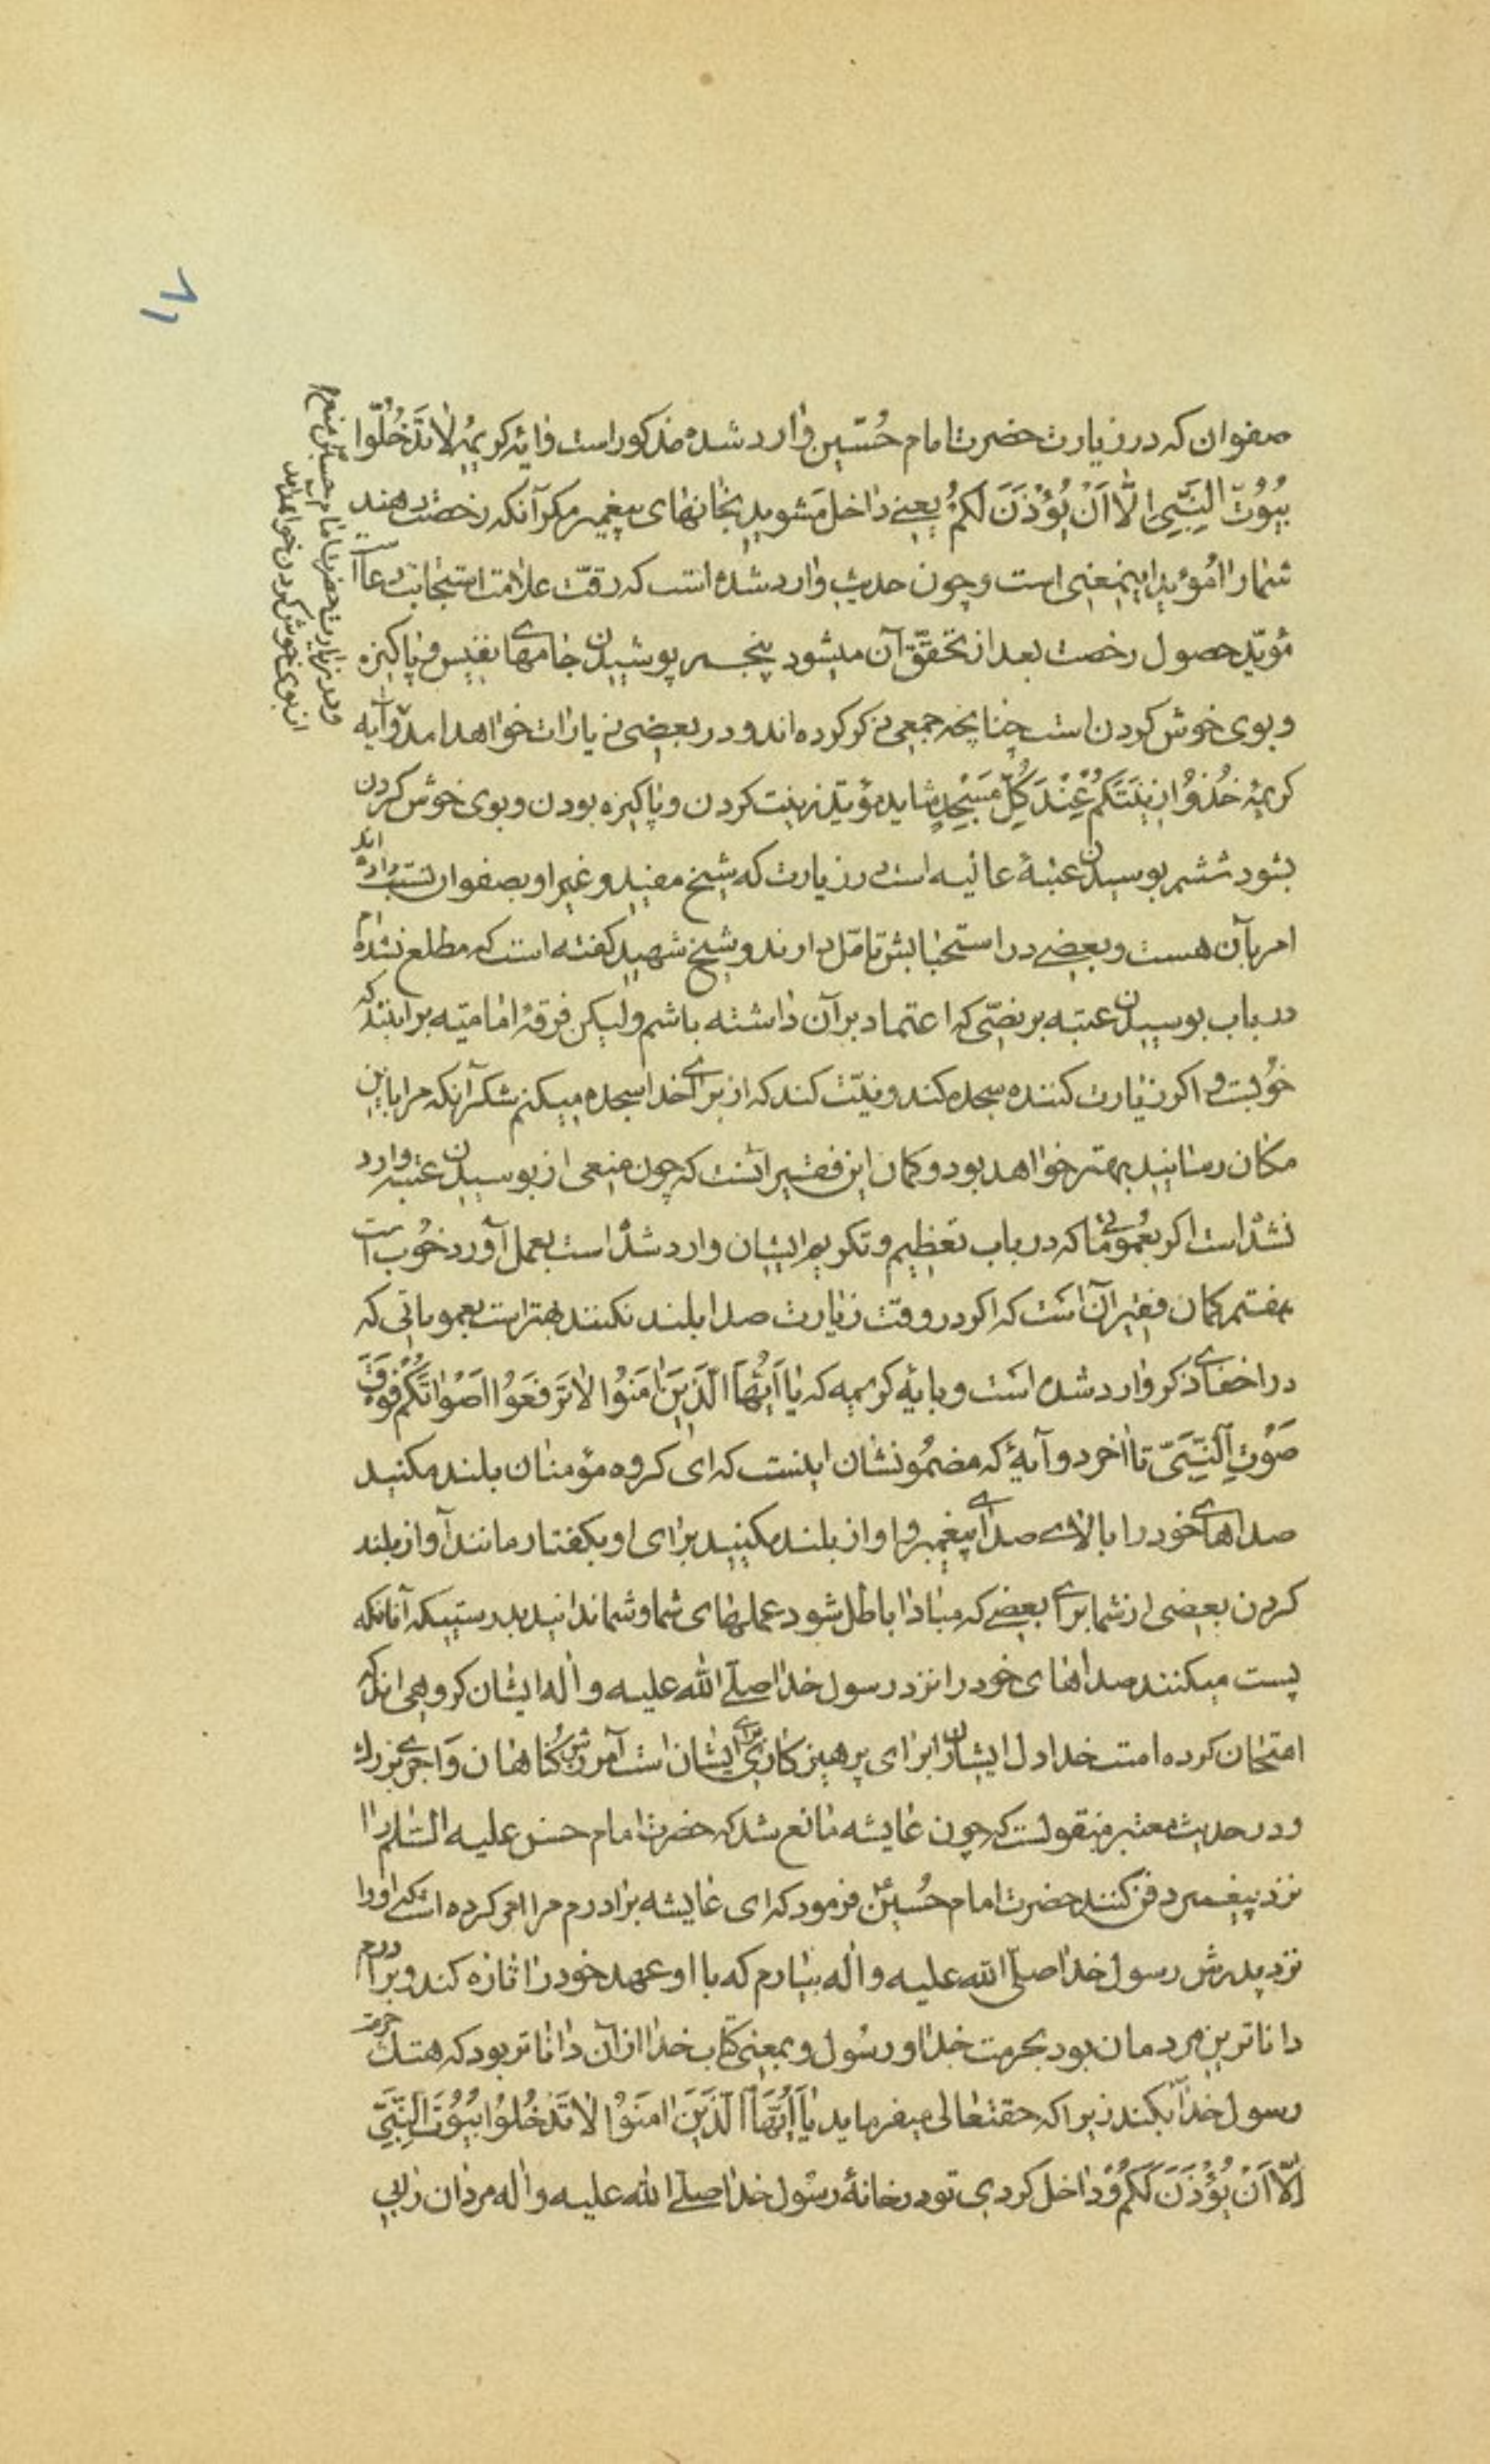 ۱۷
صفوان که در زیارت حضرت امام حُسَین وارد شده مذکور است وایهٔ کریمهٔ لا تَدخُلُوا
بُیُوتَ النَّبِیِ الّا اَنْ یُؤْذَنَ لَکُمْ یعنے داخل مَشوید بخانهای پیغمبر مکر آنکه رخصت دهند
شما را مُؤید اینمعنی است و چون حدیث وارد شده است که رقّت علامت استجابت دعا
مُؤیّد حصول رخصت بعد از تحقّق آن میشود پنجم پوشیدن جامهای نفیس و پاکیزه
و بوی خوش کردن است چنانچه جمعی ذکر کرده اند و در بعضی زیارات خواهد امد و آیه
کریمهٔ خُذوُا زینَتَکُمْ عِنْدَ کُلِّ مَسْجِدٍ شاید مؤیّد زینت کردن و پاکیزه بودن و بوی خوش کردن
بشود ششم بوسیدن عتبهٔ عالیه است در زیارت که شیخ مفید و غیر او بصفوان نسبت داده اند
امر بآن هست و بعضے در استحبابش تامّل دارند و شیخ شهید کفته است که مطلع نشده ام
در باب بوسیدن عتبه بر نصّی که اعتماد بر آن داشته باشم ولیکن فرقهٔ امامیّه بر اینند که
خوُبست و اکر زیارت کننده سجده کند و نیّت کند که از برای خدا سجده میکنم شکر آنکه مرا باین
مکان رسانید بهتر خواهد بود و کمان این فقیر انست که چون منعی از بوسیدن عتبه وارد
نشده است اکر بعُموُماتی که در باب تعظیم و تکریم ایشان وارد شده است بعمل آورد خوُب است
هفتم کمان فقیر آن است که اکر در وقت زیارت صدا بلند نکنند بهتر است بعموماتی که
در اخفای ذکر وارد شده است و بایهٔ کریمه که یا اَیُّهَا الَّذینَ امَنوُا لا تَرفَعوُا اَصْواتَکُمْ فَوْقَ
صَوْتِ النَّبِیِّ تا اخر دو آیهٔ که مضمُونشان اینست که ای کروه مؤمنان بلند مکنید
صداهای خود را بالای صدای پیغمبر و اواز بلند مکنید برای او بکفتار مانند آواز بلند
کردن بعضی از شما برای بعضے که مبادا باطل شود عملهای شما و شما ندانید بدرستیکه آنانکه
پست میکنند صداهای خود را نزد رسول خدا صلّے الله علیه و اله ایشان کروهی اند که
امتحان کرده است خدا دل ایشان را برای پرهیزکاری برای ایشان است آمرزش کُناهان وَ اجری بزرك
و در حدیث معتبر منقولست که چون عایشه مانع شد که حضرت امام حسن علیه السّلام را
نزد پیغمبر دفن کنند حضرت امام حُسین ع فرمود که ای عایشه برادرم مرا امر کرده است که او را
نزد پدرش رسول خدا صلّی الله علیه و اله بیارم که با او عهد خود را تازه کند و برادرم
داناترین مردمان بود بحرمت خدا و رسُول و بمعنی کتاب خدا از آن داناتر بود که هتك حرمت
رسول خدا بکند زیرا که حقتعالی میفرماید یا اَیُّهَا الَّذینَ امَنوُا لا تَدْخُلوُا بُیوُتَ النَّبِیِّ
اِلّا اَنْ یُؤْذَنَ لَکُمْ وُ داخل کردی تو در خانهٔ رسُول خدا صلّے الله علیه و اله مردان را بی
و در زیارت حضرت امام حسین منع
از بوی خوش کردن خواهد آمد